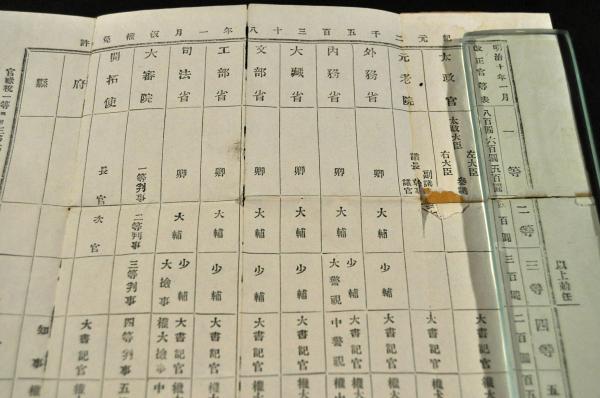 紀元二千五百三十八年一月改 權免許
明治十年一月
改正官等表
一等
八百圓六百圓五百圓
二等
四百圓
三等
三百圓
四等
二百圓
五
以上勅任
太政官
太政大臣
左大臣
右大臣
參議
大書記官
元老院
議長
副議長
議官
大書記官
外務省
卿
大輔
少輔
大書記官
內務省
卿
大輔
少輔
大警視
大書記官
中警視
大藏省
卿
大輔
少輔
大書記官
文部省
卿
大輔
少輔
大書記官
工部省
卿
大輔
少輔
大書記官
司法省
卿
大輔
少輔
大檢事
大書記官
權大檢事
大審院
一等判事
二等判事
三等判事
四等判事
五
開拓使
長官
次官
大書記官
府
縣
官祿稅一等